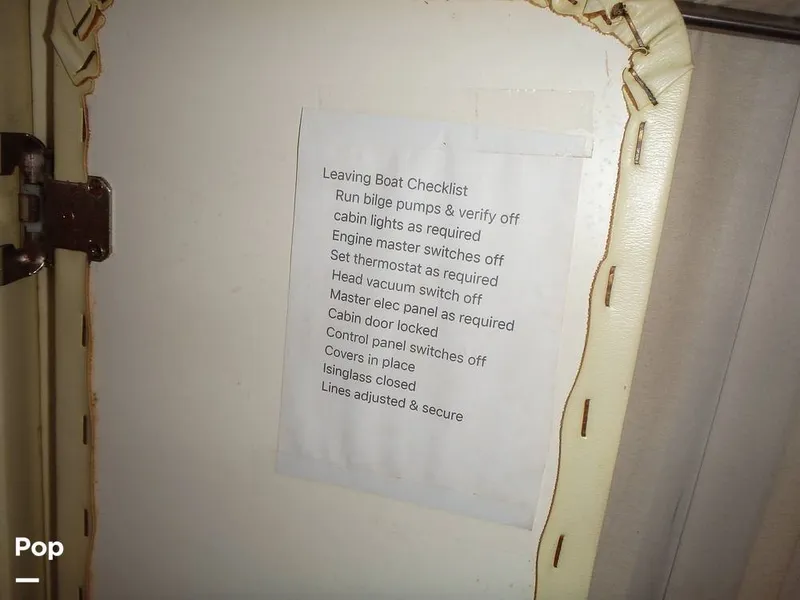 Leaving Boat Checklist
Run bilge pumps & verify off
cabin lights as required
Engine master switches off
Set thermostat as required
Head vacuum switch off
Master elec panel as required
Cabin door locked
Control panel switches off
Covers in place
Isinglass closed
Lines adjusted & secure
Pop